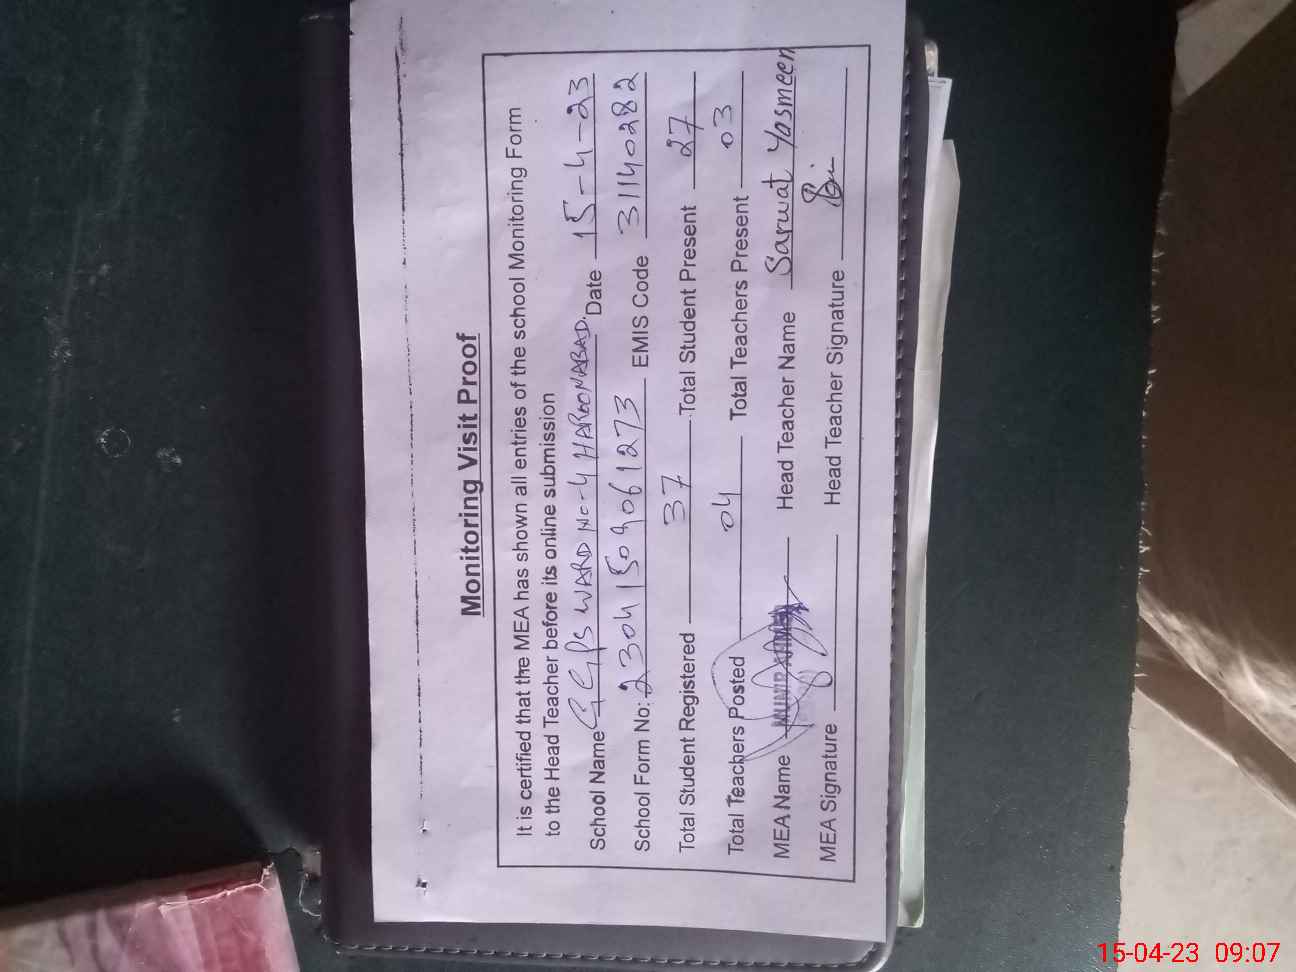 Monitoring Visit Proof
It is certified that the MEA has shown all entries of the school Monitoring Form
to the Head Teacher before its online submission
School Name GGPS WARD No-4 HAROONABAD. Date 15-4-23
School Form No: 23041509061273 EMIS Code 31140282
Total Student Registered 37 Total Student Present 27
Total Teachers Posted 04 Total Teachers Present 03
MEA Name Head Teacher Name Sarwat Yasmeen
MEA Signature Head Teacher Signature
15-04-23 09:07